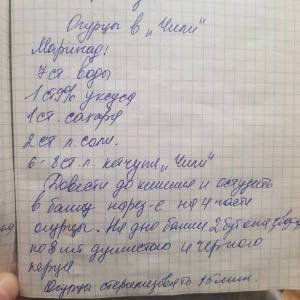 Огурцы в „Чили"
Маринад:
7 ст воды
1 ст 9% уксуса
1 ст. сахара
2 ст л соли.
6-8 ст. л. кетчупа „Чили"
Довести до кипения и остудить
в банку нарез-е на 4 части
огурцы. На дно банки 2 бутона гвозд
по 3 шт душистого и черного
перца.
Огурцы стерилизовать 15 мин.